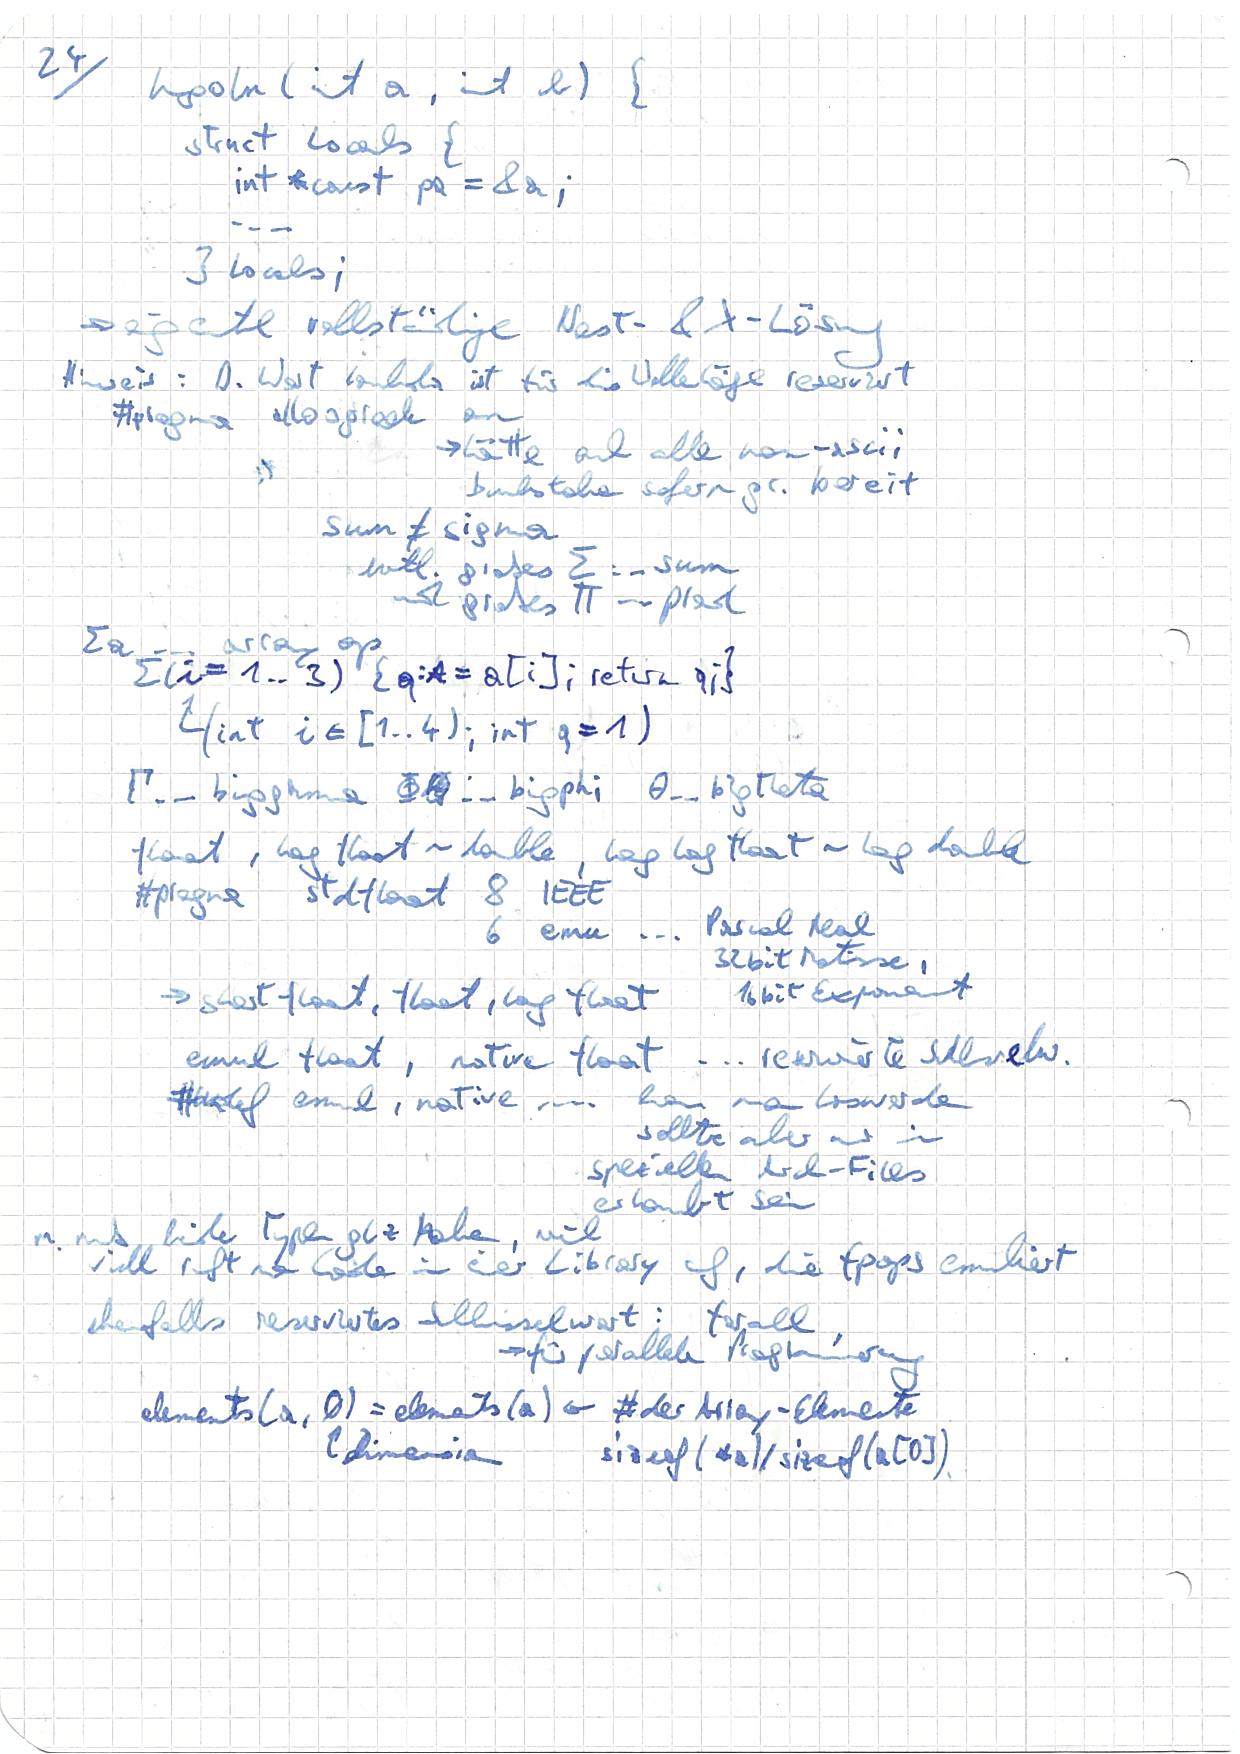 24/
(int a, int b) {
struct Locals {
int *const pa = &a;
---
} Locals;
→ vollständige Nest- & λ-Lösung
Hinweis: D. Wort lambda ist für die reserviert
#pragma an
→ hätte auf alle non-ascii
Buchstaben sofern gr. bereit
sum ≠ sigma
evtl. großes Σ ... sum
und großes Π ... prod
Σa ... array op
Σ(i = 1..3) {q:* = a[i]; return q;}
(int i ∈ [1..4); int q = 1)
Γ... biggamma Φ ... bigphi Θ... bigtheta
float, long float ~ double, long long float ~ long double
#pragma stdfloat 8 IEEE
6 emu ... Pascal Real
32bit Matisse,
→ short float, float, long float 16bit Exponent
emul float, native float ... reservierte Schlüsselw.
#undef emul, native ... kann man loswerden
sollte aber nur in
speziellen Arch-Files
erlaubt sein
m. muß beide Typen glz haben, weil
vill ruft man Code in einer Library auf, die fpops emuliert
ebenfalls reserviertes Schlüsselwort: forall,
→ für parallele Programmierung
elements(a, 0) = elements(a) ← # der Array-Elemente
dimension sizeof(*a)/sizeof(a[0])